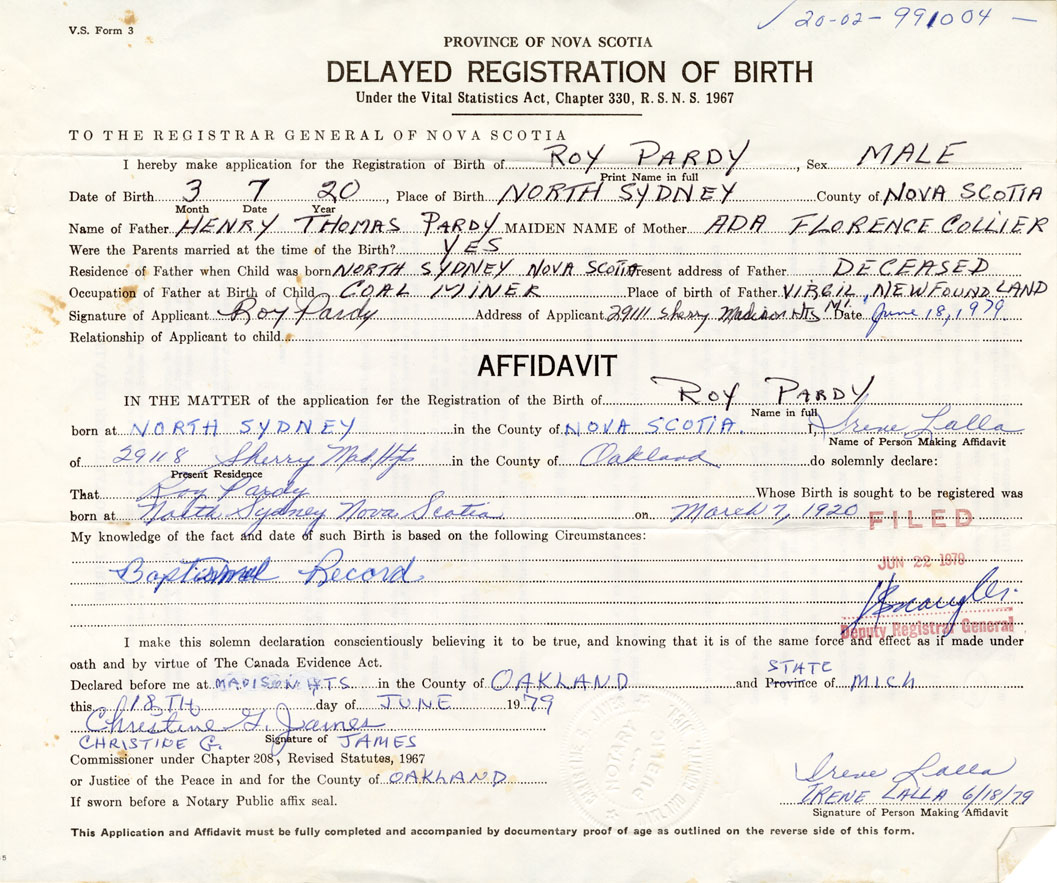 V.S. Form 3
20-02-991004 —
PROVINCE OF NOVA SCOTIA
DELAYED REGISTRATION OF BIRTH
Under the Vital Statistics Act, Chapter 330, R.S.N.S. 1967
TO THE REGISTRAR GENERAL OF NOVA SCOTIA
I hereby make application for the Registration of Birth of ROY PARDY, Sex MALE
Print Name in full
Date of Birth 3 7 20, Place of Birth NORTH SYDNEY County of NOVA SCOTIA
Month Date Year
Name of Father HENRY THOMAS PARDY MAIDEN NAME of Mother ADA FLORENCE COLLIER
Were the Parents married at the time of the Birth? YES
Residence of Father when Child was born NORTH SYDNEY NOVA SCOTIA Present address of Father DECEASED
Occupation of Father at Birth of Child COAL MINER Place of birth of Father VIRGIL, NEWFOUNDLAND
Signature of Applicant Roy Pardy Address of Applicant 29111 Sherry Madison Hts Mi. Date June 18, 1979
Relationship of Applicant to child
AFFIDAVIT
IN THE MATTER of the application for the Registration of the Birth of ROY PARDY
Name in full
born at NORTH SYDNEY in the County of NOVA SCOTIA. I, Irene Lalla
Name of Person Making Affidavit
of 29118 Sherry Mad. Hgts in the County of Oakland do solemnly declare:
Present Residence
That Roy Pardy Whose Birth is sought to be registered was
born at North Sydney Nova Scotia on March 7, 1920
FILED
My knowledge of the fact and date of such Birth is based on the following Circumstances:
JUN 22 1979
Baptismal Record
Deputy Registrar General
I make this solemn declaration conscientiously believing it to be true, and knowing that it is of the same force and effect as if made under
oath and by virtue of The Canada Evidence Act.
STATE
Declared before me at MADISON HTS in the County of OAKLAND and Province of MICH
this 18TH day of JUNE 1979
Christine G. James
CHRISTINE G. JAMES
Signature of
Commissioner under Chapter 208, Revised Statutes, 1967
or Justice of the Peace in and for the County of OAKLAND
Irene Lalla
If sworn before a Notary Public affix seal.
IRENE LALLA 6/18/79
Signature of Person Making Affidavit
NOTARY PUBLIC
This Application and Affidavit must be fully completed and accompanied by documentary proof of age as outlined on the reverse side of this form.
5